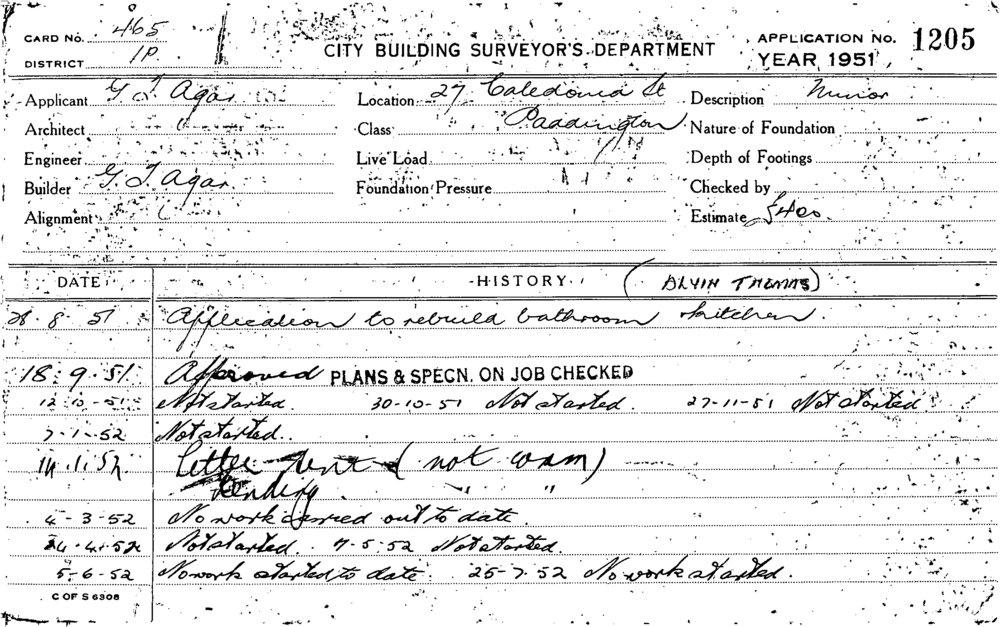 CARD No. 465
DISTRICT 1P.
CITY BUILDING SURVEYOR'S DEPARTMENT
APPLICATION No. 1205
YEAR 1951
Applicant G. T. Agar Location 27 Caledonia St Description Minor
Architect Class Paddington Nature of Foundation
Engineer Live Load Depth of Footings
Builder G. T. Agar Foundation Pressure Checked by
Alignment Estimate £400.
DATE HISTORY (ALVIN THOMAS)
28.8.51 Application to rebuild bathroom kitchen.
18.9.51 Approved PLANS & SPECN. ON JOB CHECKED
12-10-51 Not started. 30-10-51 Not started. 27-11-51 Not started
7-1-52 Not started.
14.1.52 Letter sent (not comm)
Pending " "
4-3-52 No work carried out to date.
4.52 Not started. 7-5-52 Not started.
5-6-52 No work started to date. 25-7-52 No work started.
C OF S 6308